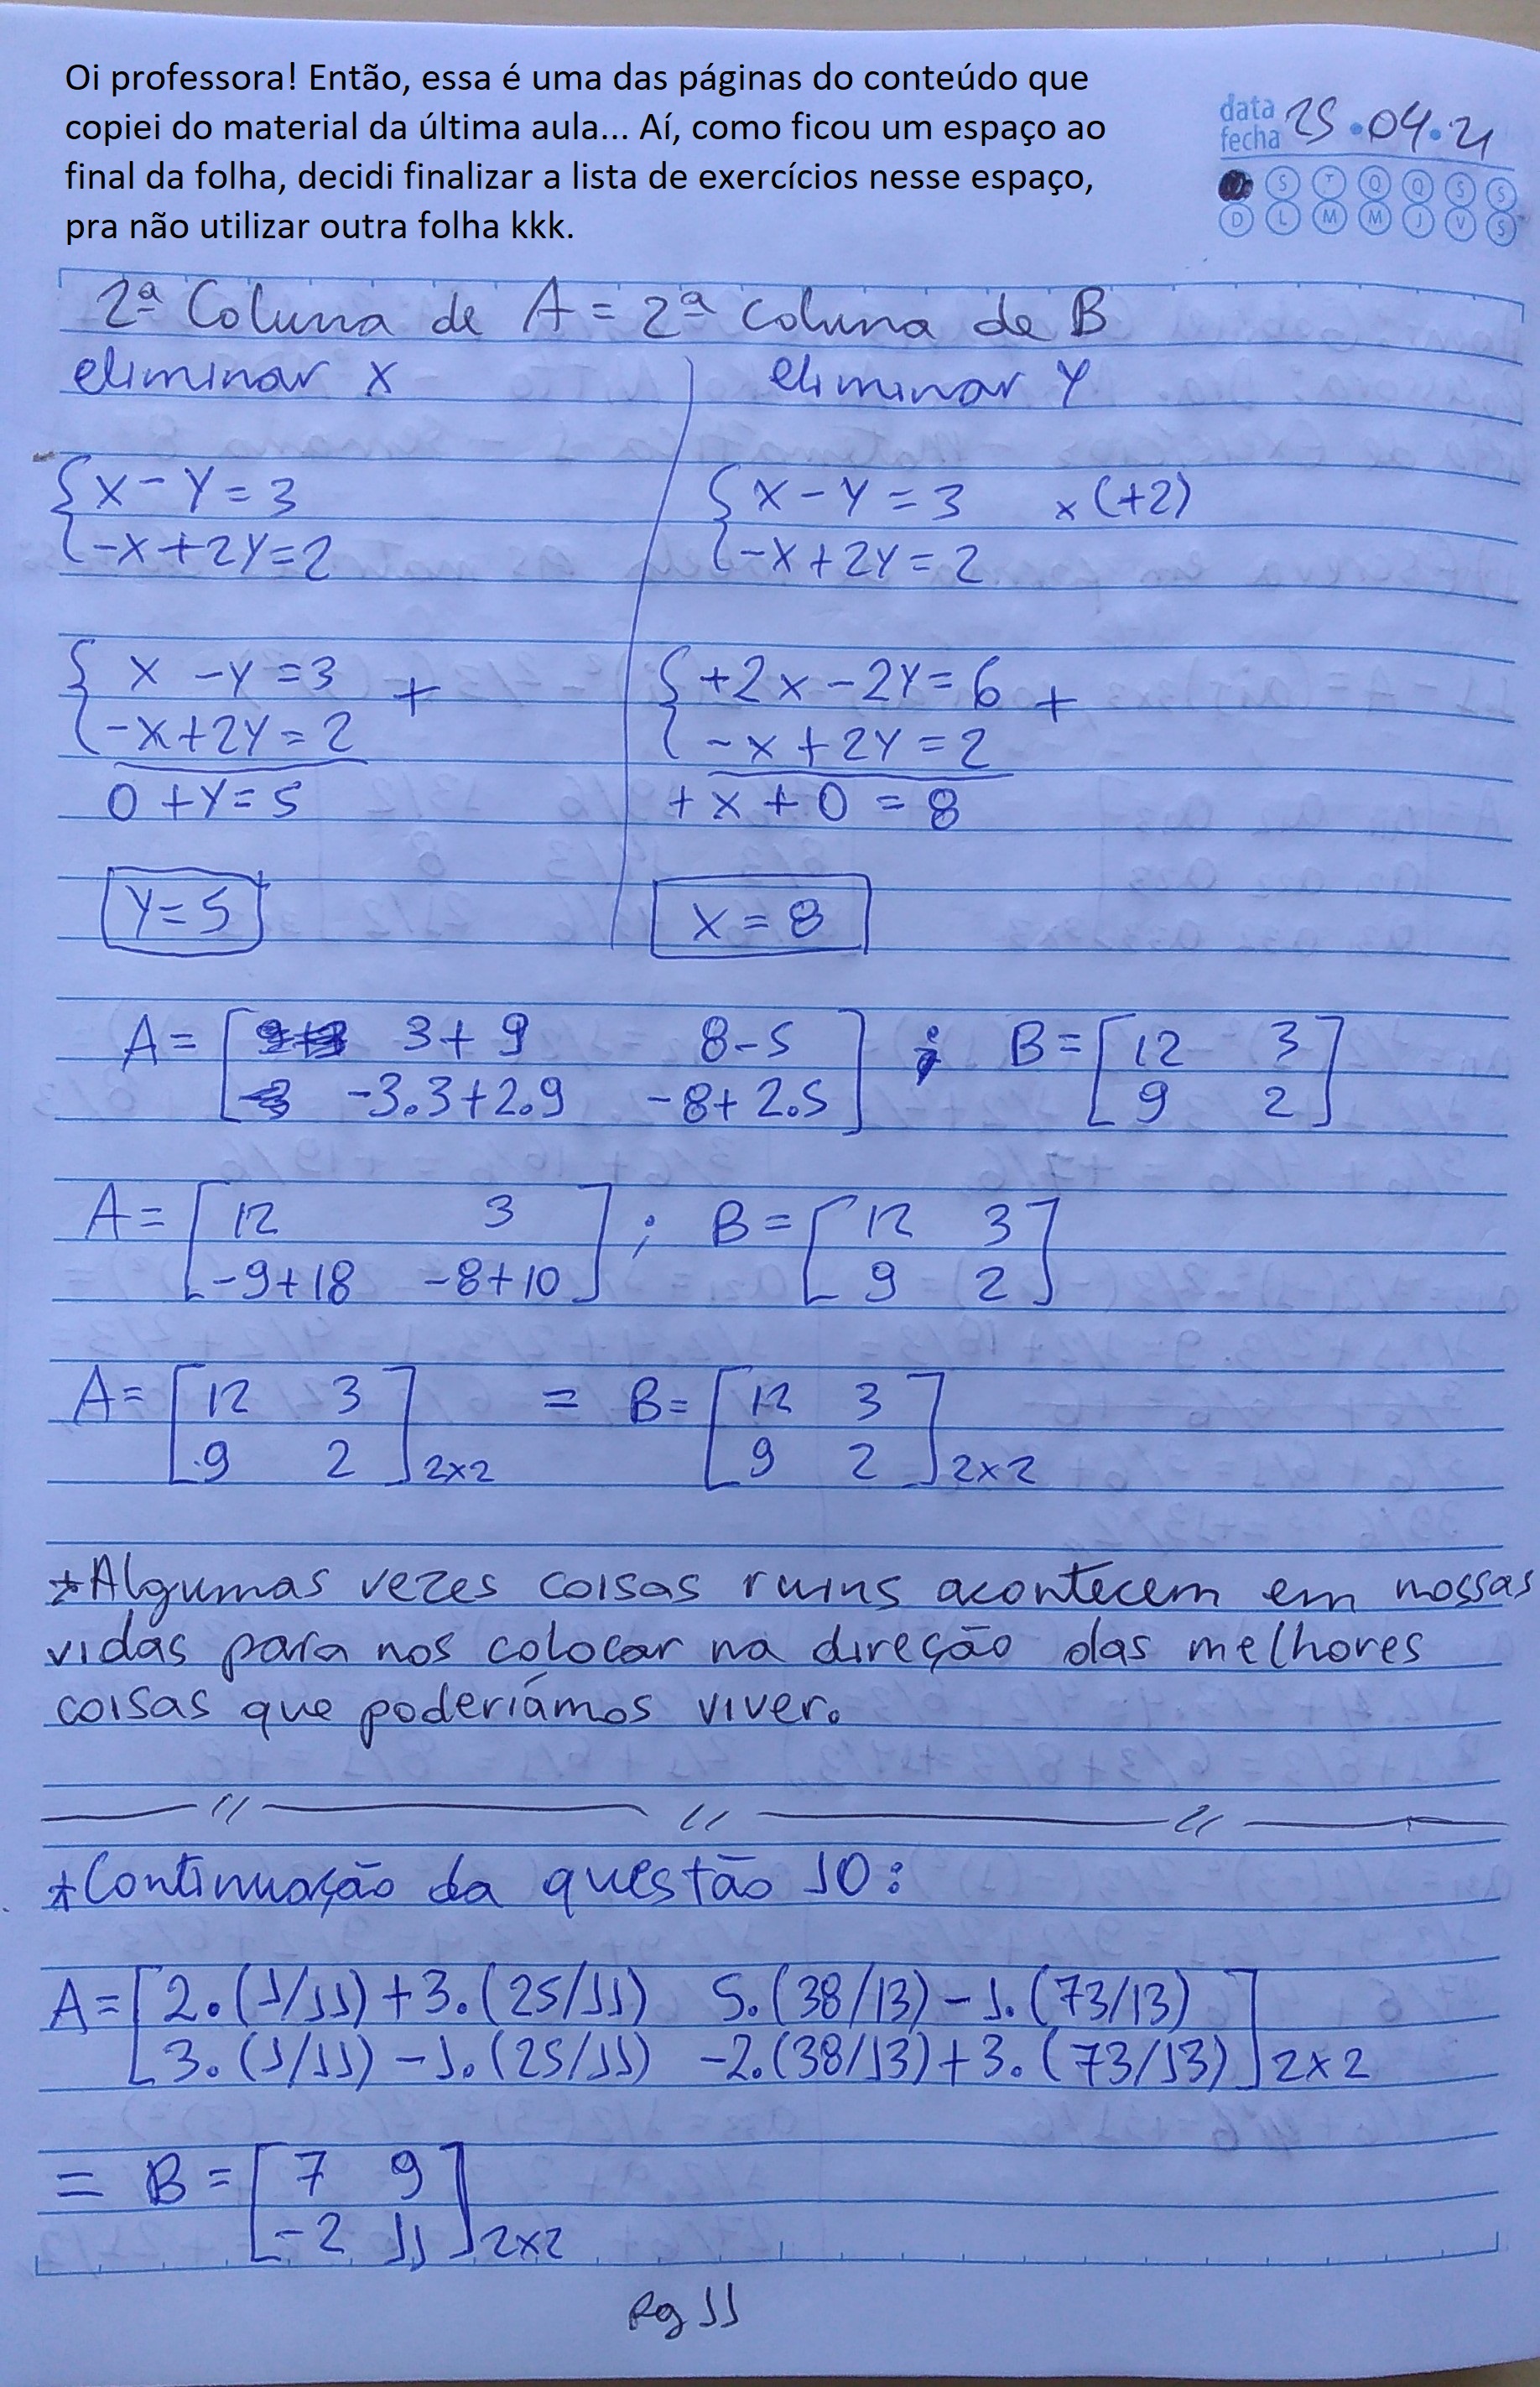 Oi professora! Então, essa é uma das páginas do conteúdo que
copiei do material da última aula... Aí, como ficou um espaço ao
final da folha, decidi finalizar a lista de exercícios nesse espaço,
pra não utilizar outra folha kkk.
data
fecha 25.04.21
S T Q Q S S
D L M M J V S
2ª Coluna de A = 2ª coluna de B
eliminar X eliminar Y
{X - Y = 3 {X - Y = 3 x (+2)
{-X + 2Y = 2 {-X + 2Y = 2
{X - Y = 3 + {+2X - 2Y = 6 +
{-X + 2Y = 2 {-X + 2Y = 2
0 + Y = 5 +X + 0 = 8
Y = 5 X = 8
A = [3+9 8-5 ; B = [12 3]
-3.3+2.9 -8+2.5] 9 2]
A = [12 3 ; B = [12 3]
-9+18 -8+10] 9 2]
A = [12 3 = B = [12 3
9 2] 2x2 9 2] 2x2
*Algumas vezes coisas ruins acontecem em nossas
vidas para nos colocar na direção das melhores
coisas que poderiámos viver.
*Continuação da questão 10:
A = [2.(1/11)+3.(25/11) 5.(38/13)-1.(73/13)
3.(1/11)-1.(25/11) -2.(38/13)+3.(73/13)] 2x2
= B = [7 9
-2 11] 2x2
Pg 11